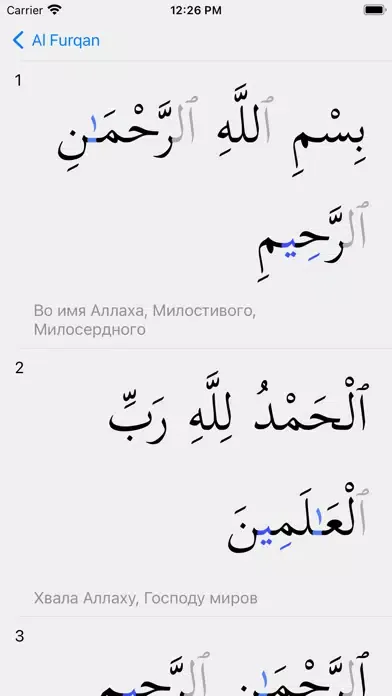 Carrier 12:26 PM
Al Furqan
1
بِسْمِ ٱللَّهِ ٱلرَّحْمَـٰنِ
ٱلرَّحِيمِ
Во имя Аллаха, Милостивого,
Милосердного
2
ٱلْحَمْدُ لِلَّهِ رَبِّ
ٱلْعَـٰلَمِينَ
Хвала Аллаху, Господу миров
3
ٱلرَّحْمَـٰنِ ٱلرَّحِيمِ